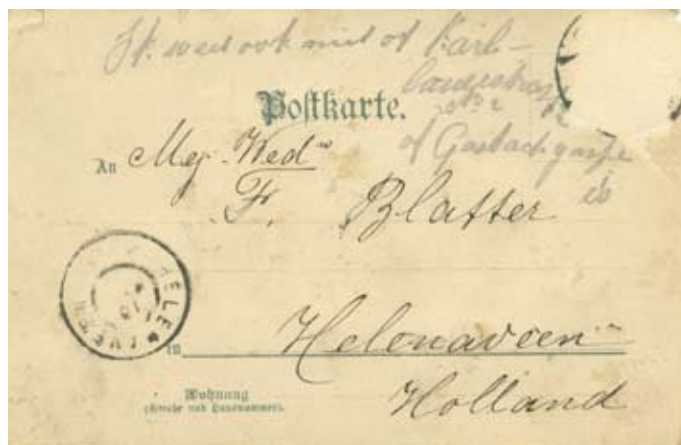 Ik weet ook niet of Karl-
of
is
Postkarte.
An Mej. Wed^n
F. Blatter
HELENAVEEN
in Helenaveen
Holland
Wohnung
(Straße und Hausnummer).